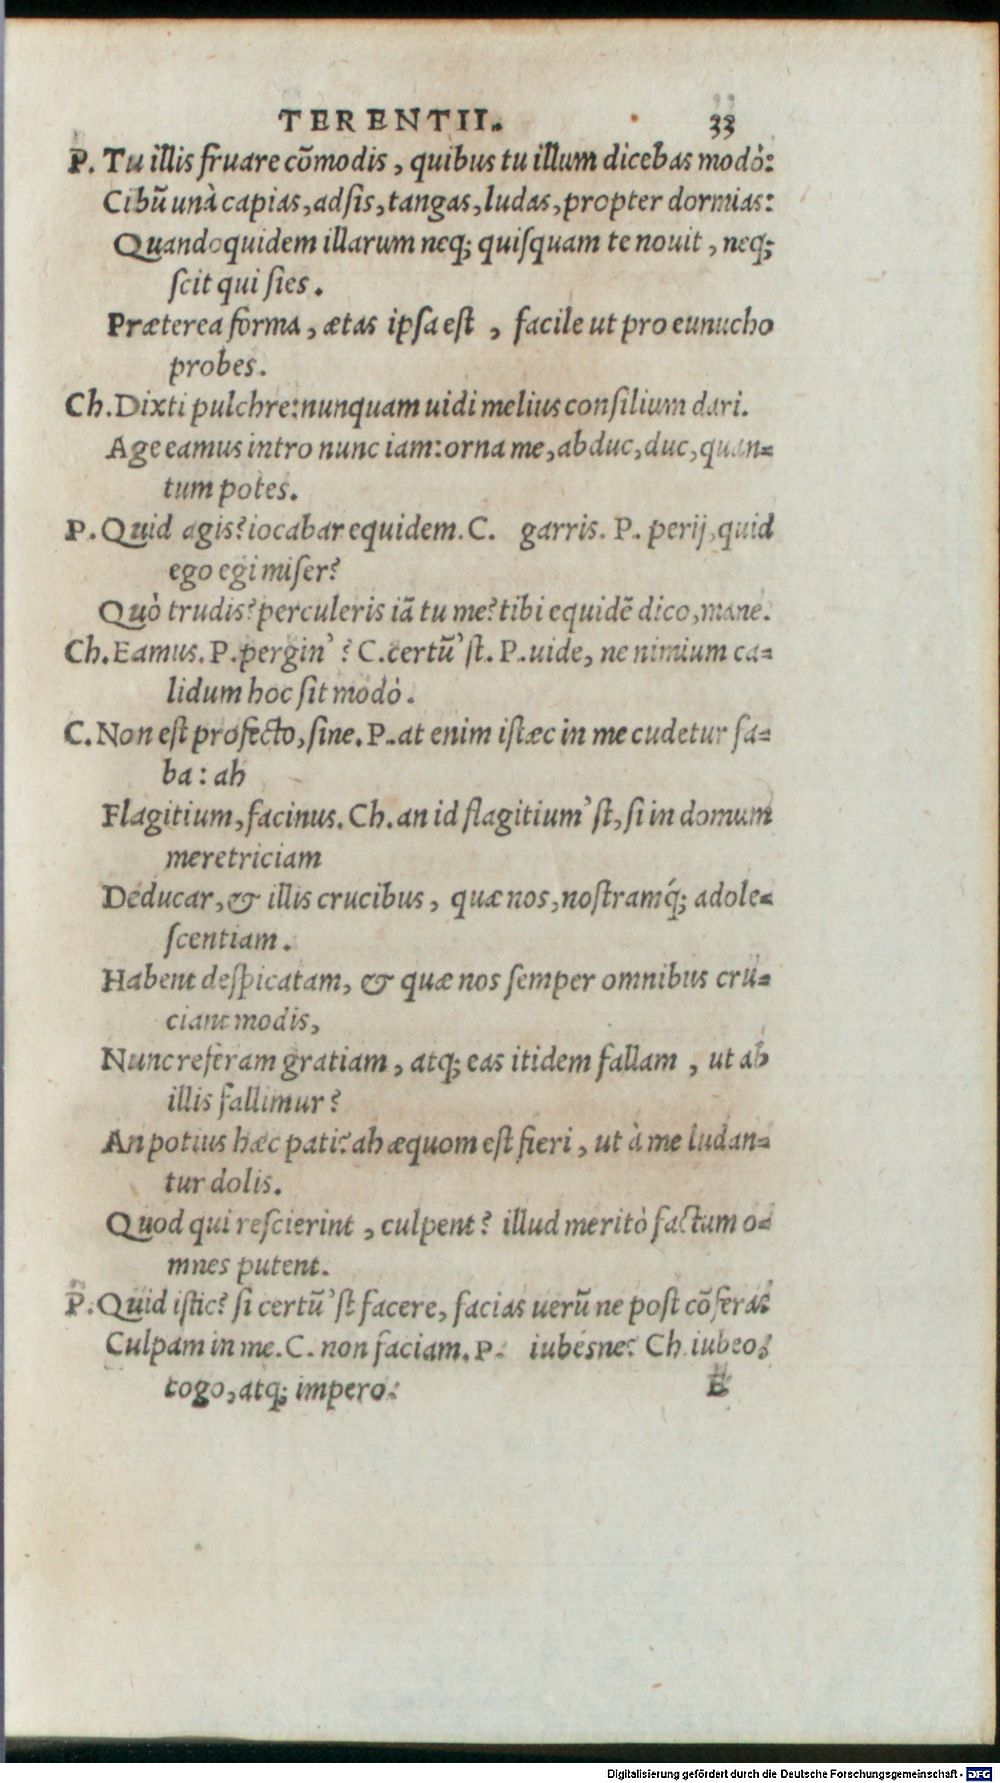 TERENTII. 33
P. Tu illis fruare cõmodis, quibus tu illum dicebas modò:
Cibũ unà capias, adsis, tangas, ludas, propter dormias:
Quandoquidem illarum neq; quisquam te nouit, neq;
scit qui sies.
Præterea forma, ætas ipsa est, facile ut pro eunucho
probes.
Ch. Dixti pulchre: nunquam uidi melius consilium dari.
Age eamus intro nunc iam: orna me, abduc, duc, quan=
tum potes.
P. Quid agis? iocabar equidem. C. garris. P. perij, quid
ego egi miser?
Quò trudis? perculeris iã tu me? tibi equidẽ dico, mane.
Ch. Eamus. P. pergin'? C. certũ'st. P. uide, ne nimium ca=
lidum hoc sit modò.
C. Non est profecto, sine. P. at enim istæc in me cudetur fa=
ba: ah
Flagitium, facinus. Ch. an id flagitium'st, si in domum
meretriciam
Deducar, & illis crucibus, quæ nos, nostramq́; adole=
scentiam.
Habent despicatam, & quæ nos semper omnibus cru=
ciant modis,
Nunc referam gratiam, atq; eas itidem fallam, ut ab
illis fallimur?
An potius hæc pati? ah æquom est fieri, ut à me ludan=
tur dolis.
Quod qui rescierint, culpent? illud meritò factum o=
mnes putent.
P. Quid istic? si certũ'st facere, facias uerũ ne post cõferas
Culpam in me. C. non faciam. P. iubesne? Ch. iubeo,
cogo, atq; impero. E
Digitalisierung gefördert durch die Deutsche Forschungsgemeinschaft - DFG